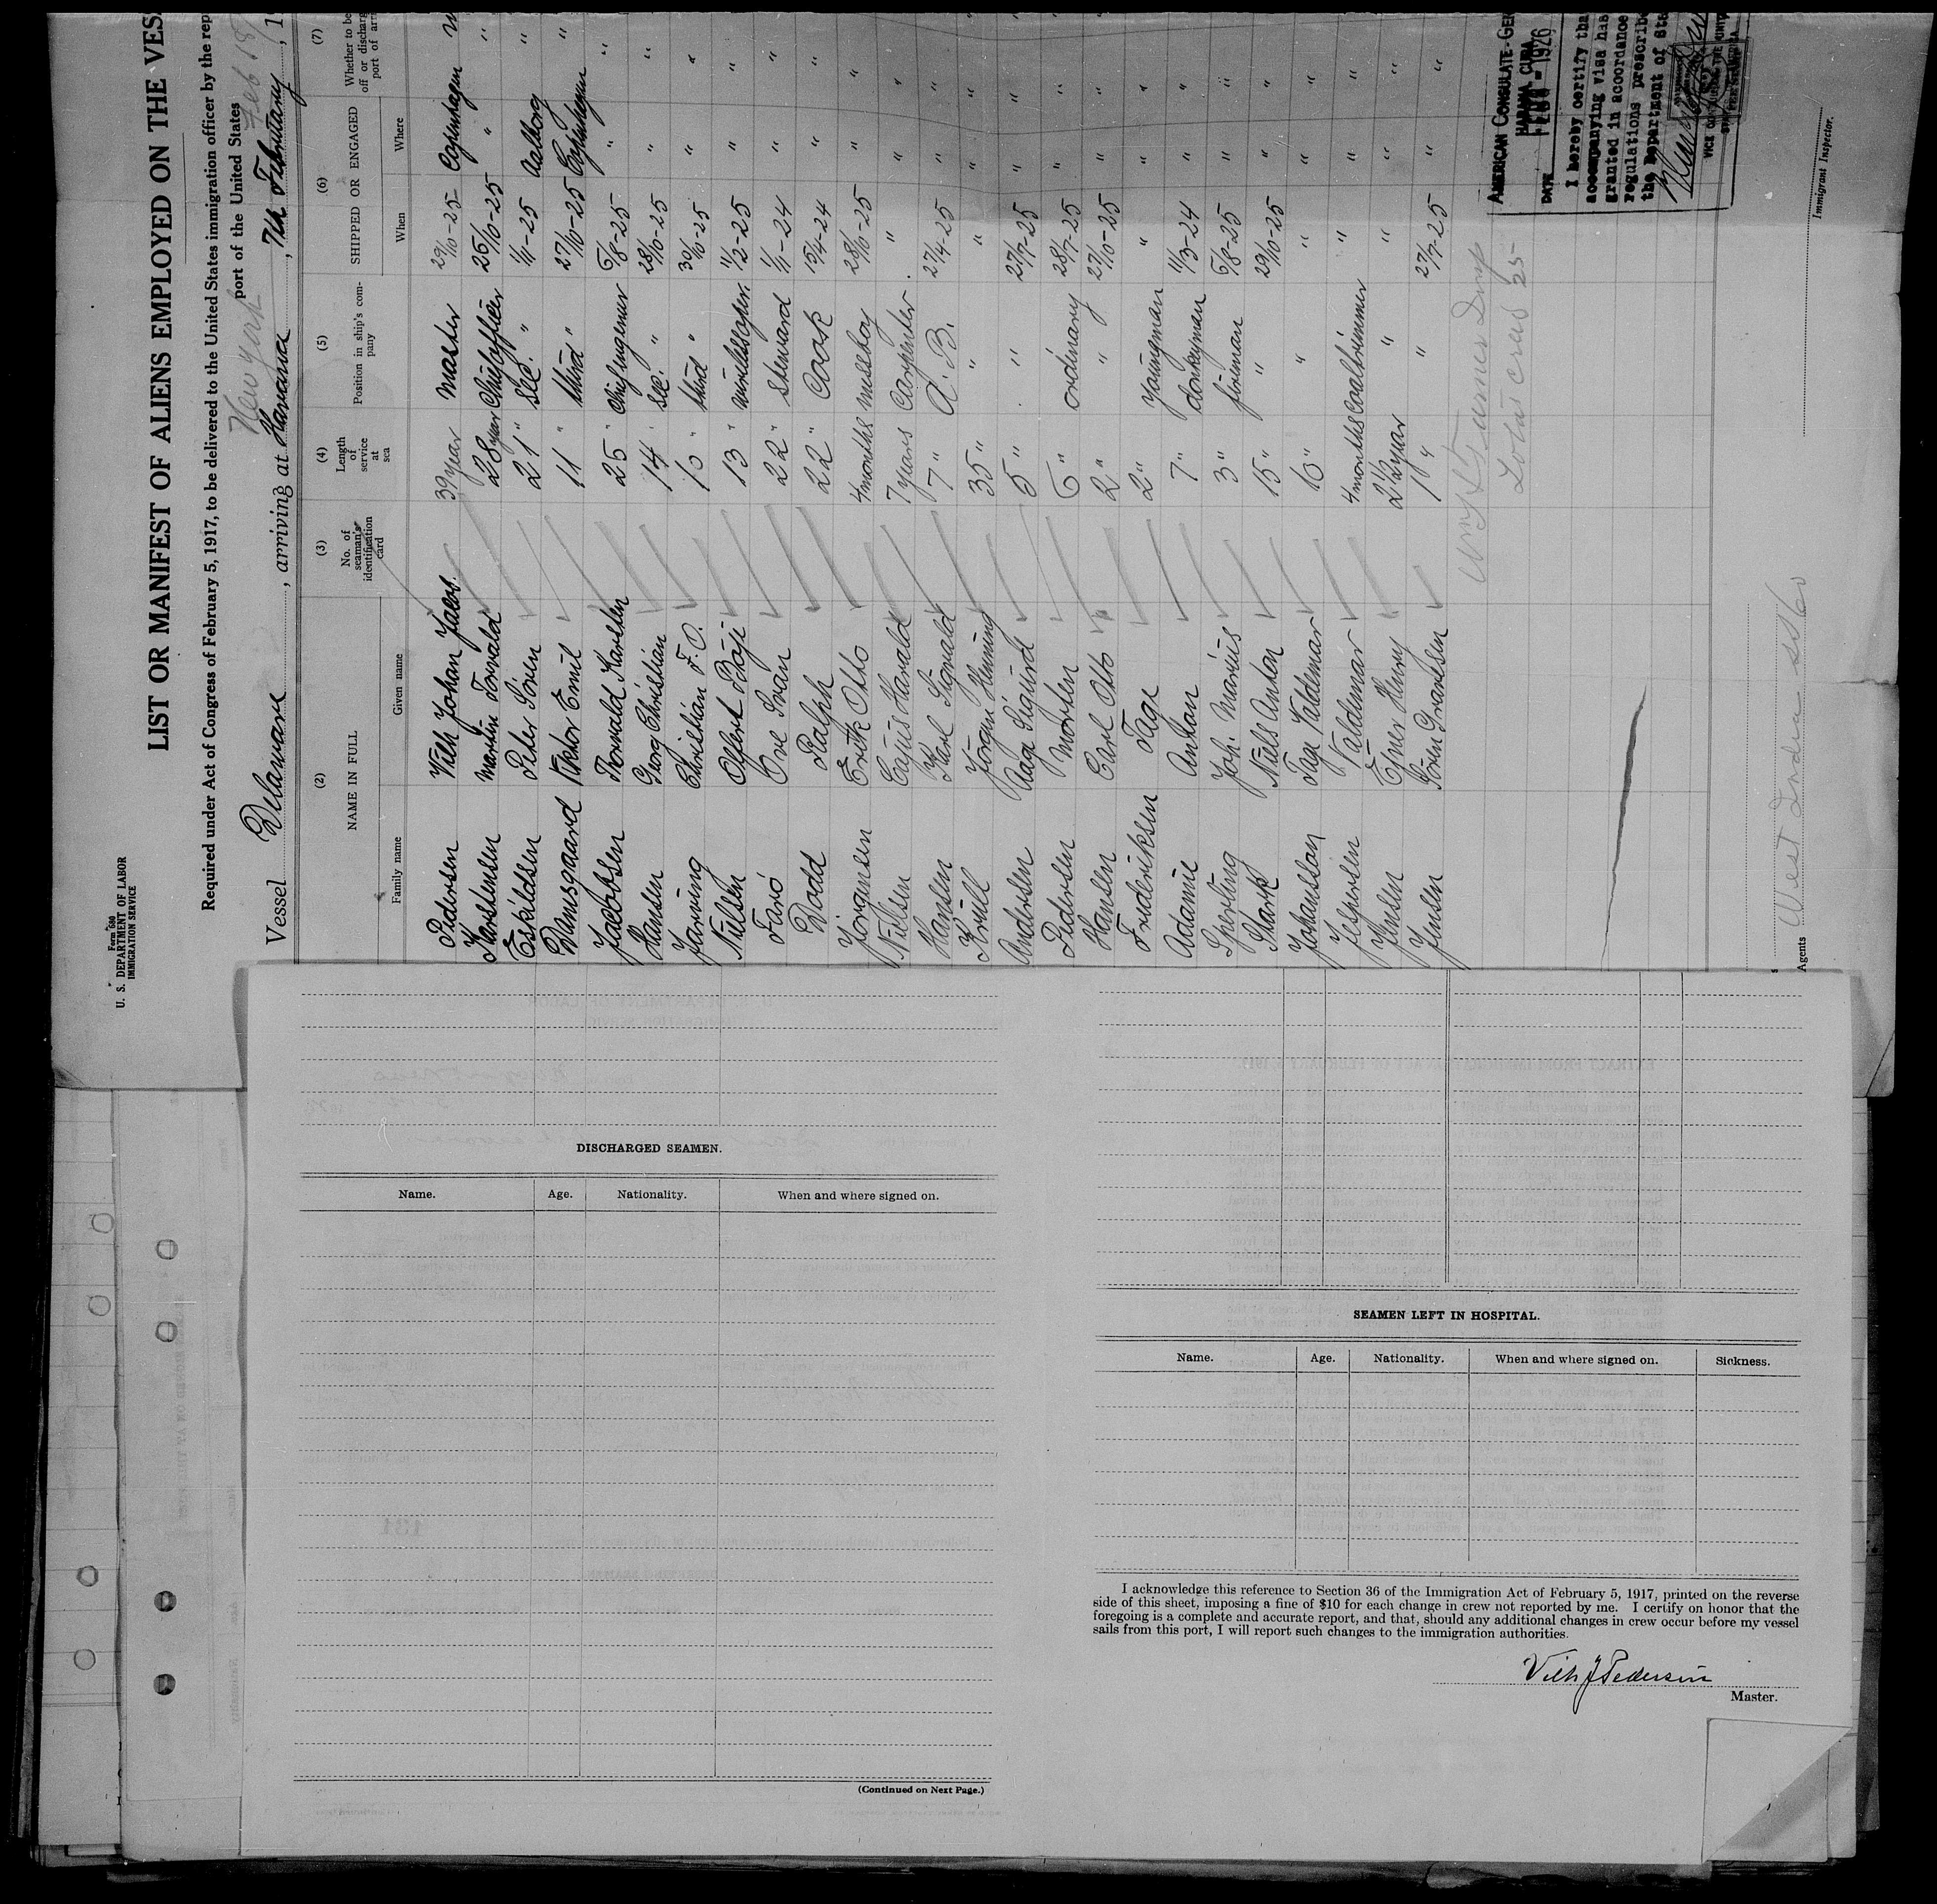 Form 680
U. S. DEPARTMENT OF LABOR
IMMIGRATION SERVICE
LIST OR MANIFEST OF ALIENS EMPLOYED ON THE VES
Required under Act of Congress of February 5, 1917, to be delivered to the United States immigration officer by the rep
port of the United States
New York Feb 18
Vessel Delaware, arriving at Havana, 7th February, 1
(2) (3) (4) (5) (6) (7)
NAME IN FULL No. of seaman's identification card Length of service at sea Position in ship's company SHIPPED OR ENGAGED Whether to be off or discharg port of arr
Family name Given name When Where
Pedersen Vilh Johan Jakob. 39 year Master 29/10-25- Copenhagen
Karstensen Martin Torvald 28 year Chiefofficer 25/10-25 "
Eskildsen Peter Sören 21 " Sec. " 1/11-25 Aalborg "
Damsgaard Viktor Emil 11 " third " 27/10-25 Copenhagen "
Jacobsen Thorvald Karsten 25 " Chiefengener 5/8-25 " "
Hansen Georg Christian 14 " Sec. " 28/10-25 " "
Jarning Christian F. O. 10 " third " 30/10-25 " "
Nielsen Olfert Båji 13 " wirelessoper. 11/2-25 " "
Farö Ove Ivan 22 " Steward 1/11-24 " "
Dodd Ralph 22 " Cook 15/4-24 " "
Jörgensen Erik Otto 4 months messboy 28/10-25 " "
Nielsen Caius Harald 7 years Carpenter " " "
Hansen Karl Sigvald 7 " A. B. 27/4-25 " "
Krüll Jörgen Henning 35 " " " " "
Andersen Aage Sigurd 5 " " 27/7-25 " "
Pedersen Morten 6 " ordinary 28/7-25 " "
Hansen Carl Otto 2 " " 27/10-25 " "
Frederiksen Tage 2 " youngman " " "
Adamie Anton 7 " donkeyman 11/3-24 " "
Sperling Joh. Marius 3 " fireman 5/8-25 " "
Stark Niels Anton 15 " " 29/10-25 " "
Johansson Tage Valdemar 10 " " " " "
Jespersen Valdemar 4 months Coaltrimmer " " "
Jensen Ejner Henry 2 1/2 year " " " "
Jensen Sören Gravesen 1 " " 27/7-25 " "
AMERICAN CONSULATE-GEN
HABANA, CUBA
DATE 1926
I hereby certify tha
accompanying visa has
granted in accordance
regulations prescribe
the Department of Sta
VICE CON
Agents West India SS Co
Immigrant Inspector.
DISCHARGED SEAMEN.
Name. Age. Nationality. When and where signed on.
(Continued on Next Page.)
SEAMEN LEFT IN HOSPITAL.
Name. Age. Nationality. When and where signed on. Sickness.
I acknowledge this reference to Section 36 of the Immigration Act of February 5, 1917, printed on the reverse
side of this sheet, imposing a fine of $10 for each change in crew not reported by me. I certify on honor that the
foregoing is a complete and accurate report, and that, should any additional changes in crew occur before my vessel
sails from this port, I will report such changes to the immigration authorities.
Vilh J Pedersen
Master.